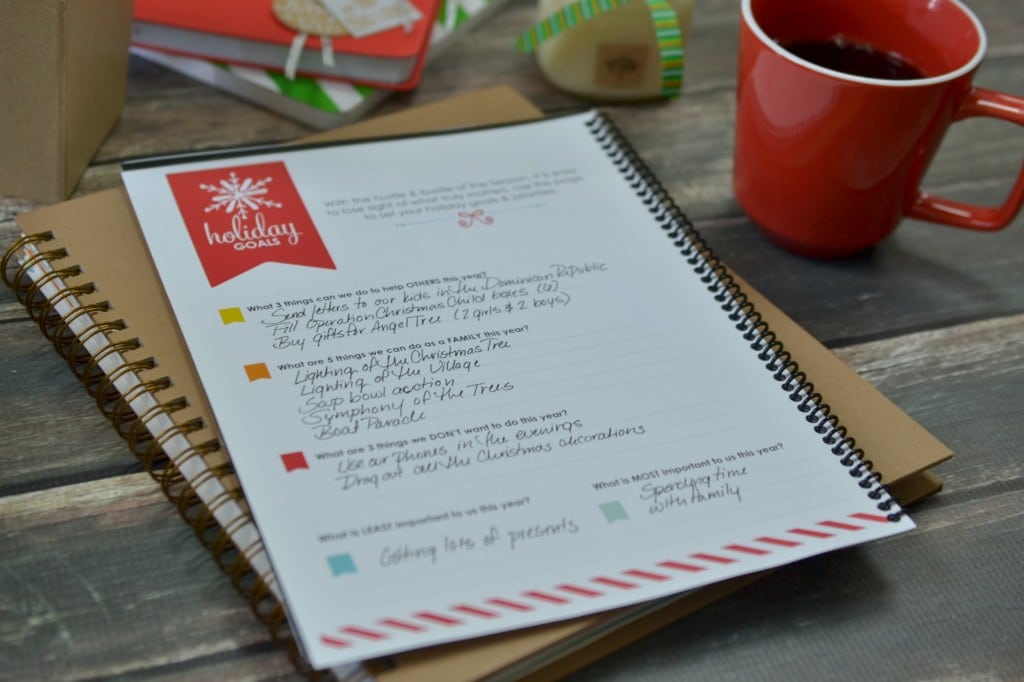 holiday
GOALS
With the hustle & bustle of the Season, it is easy
to lose sight of what truly matters. Use this page
to set your holiday goals & priorities.
What 3 things can we do to help OTHERS this year?
Send letters to our kids in the Dominican Republic
Fill Operation Christmas Child boxes (6)
Buy gifts for Angel Tree (2 girls & 2 boys)
What are 5 things we can do as a FAMILY this year?
Lighting of the Christmas Tree
Lighting of the Village
Soup bowl auction
Symphony of the Trees
Boat Parade
What are 3 things we DON'T want to do this year?
Use our phones in the evenings
Drag out all the Christmas decorations
What is LEAST important to us this year?
Getting lots of presents
What is MOST important to us this year?
Spending time
with family